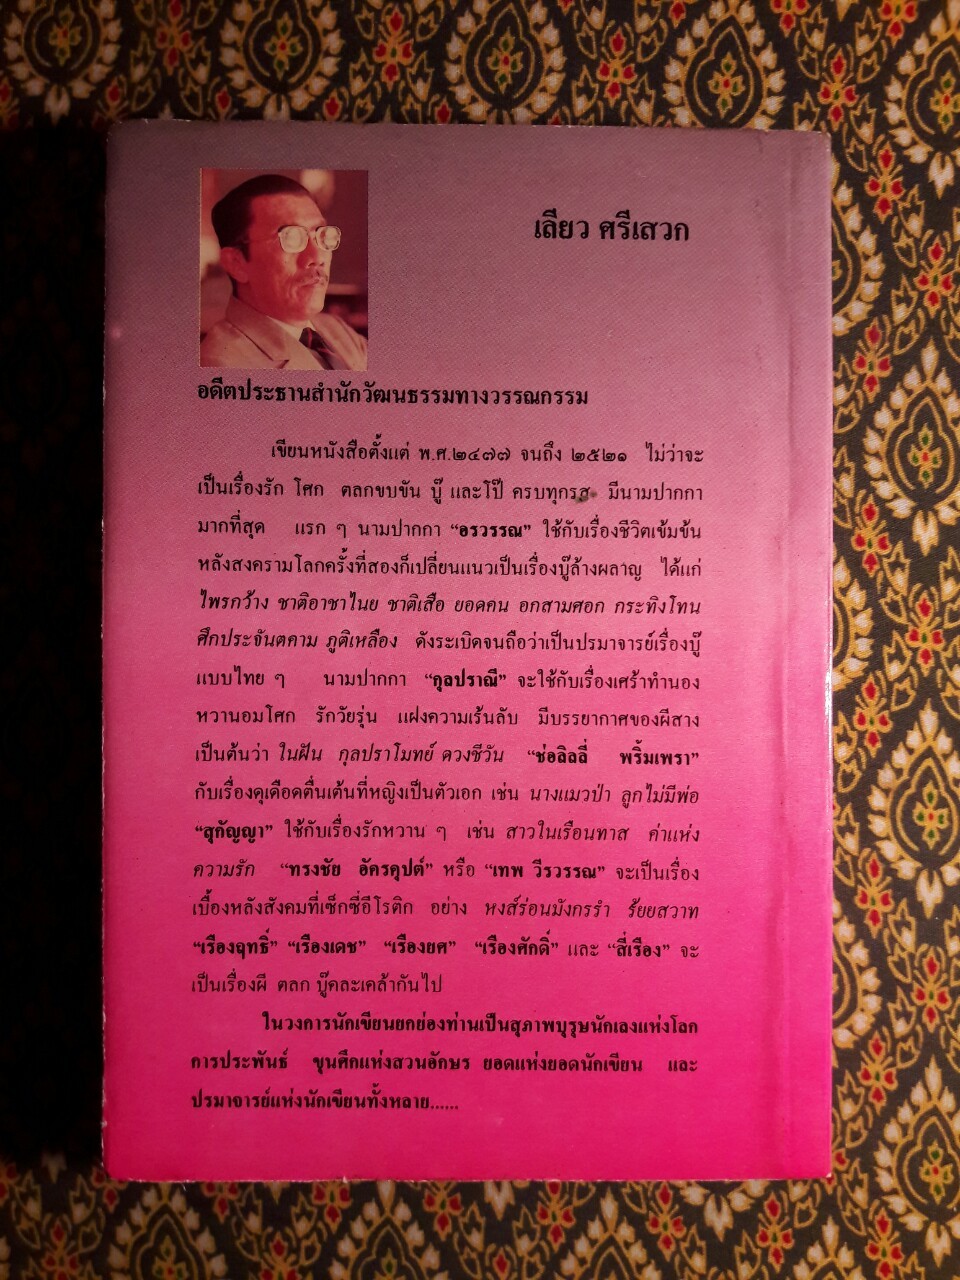 เลียว ศรีเสวก
อดีตประธานสำนักวัฒนธรรมทางวรรณกรรม
เขียนหนังสือตั้งแต่ พ.ศ.๒๔๗๗ จนถึง ๒๕๒๑ ไม่ว่าจะ
เป็นเรื่องรัก โศก ตลกขบขัน บู๊ และโป๊ ครบทุกรส มีนามปากกา
มากที่สุด แรก ๆ นามปากกา “อรวรรณ” ใช้กับเรื่องชีวิตเข้มข้น
หลังสงครามโลกครั้งที่สองก็เปลี่ยนแนวเป็นเรื่องบู๊ล้างผลาญ ได้แก่
ไพรกว้าง ชาติอาชาไนย ชาติเสือ ยอดคน อกสามศอก กระทิงโทน
ศึกประจันตคาม ภูติเหลือง ดังระเบิดจนถือว่าเป็นปรมาจารย์เรื่องบู๊
แบบไทย ๆ นามปากกา “กุลปราณี” จะใช้กับเรื่องเศร้าทำนอง
หวานอมโศก รักวัยรุ่น แฝงความเร้นลับ มีบรรยากาศของผีสาง
เป็นต้นว่า ในฝัน กุลปราโมทย์ ดวงชีวัน “ช่อลิลลี่ พริ้มเพรา”
กับเรื่องดุเดือดตื่นเต้นที่หญิงเป็นตัวเอก เช่น นางแมวป่า ลูกไม่มีพ่อ
“สุกัญญา” ใช้กับเรื่องรักหวาน ๆ เช่น สาวในเรือนทาส ค่าแห่ง
ความรัก “ทรงชัย อัครคุปต์” หรือ “เทพ วีรวรรณ” จะเป็นเรื่อง
เบื้องหลังสังคมที่เซ็กซี่อีโรติก อย่าง หงส์ร่อนมังกรรำ ร้ยยสวาท
“เรืองฤทธิ์” “เรืองเดช” “เรืองยศ” “เรืองศักดิ์” และ “สี่เรือง” จะ
เป็นเรื่องผี ตลก บู๊คละเคล้ากันไป
ในวงการนักเขียนยกย่องท่านเป็นสุภาพบุรุษนักเลงแห่งโลก
การประพันธ์ ขุนศึกแห่งสวนอักษร ยอดแห่งยอดนักเขียน และ
ปรมาจารย์แห่งนักเขียนทั้งหลาย......